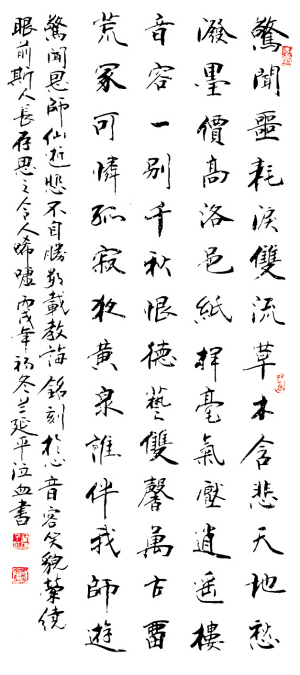 驚聞噩耗淚雙流草木含悲天地愁
潑墨價高洛邑紙揮毫氣壓逍遥樓
音容一别千秋恨德藝雙馨萬古留
荒冢可憐孤寂夜黄泉誰伴我師遊
驚聞恩師仙逝悲不自勝數載教誨銘刻於心音容笑貌縈繞
眼前斯人長存思之令人唏嘘丙戌年初冬兰延平泣血書